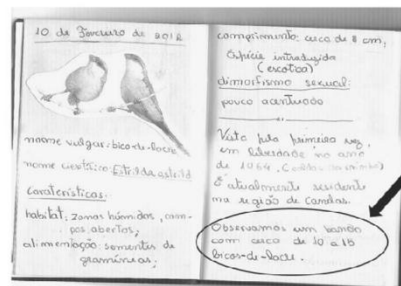 10 de Fevereiro de 2012
nome vulgar: bico-de-lacre
nome científico: Estrilda astrild
Caraterísticas:
habitat: zonas húmidas, cam-
pos abertos;
alimentação: sementes de
gramíneas;
comprimento: cerca de 8 cm;
Espécie introduzida
(exótica)
dimorfismo sexual:
pouco acentuado
Vista pela primeira vez,
em liberdade no ano
de 1964,
É atualmente residente
na região de Canelas.
Observamos um bando
com cerca de 10 a 15
bicos-de-lacre.